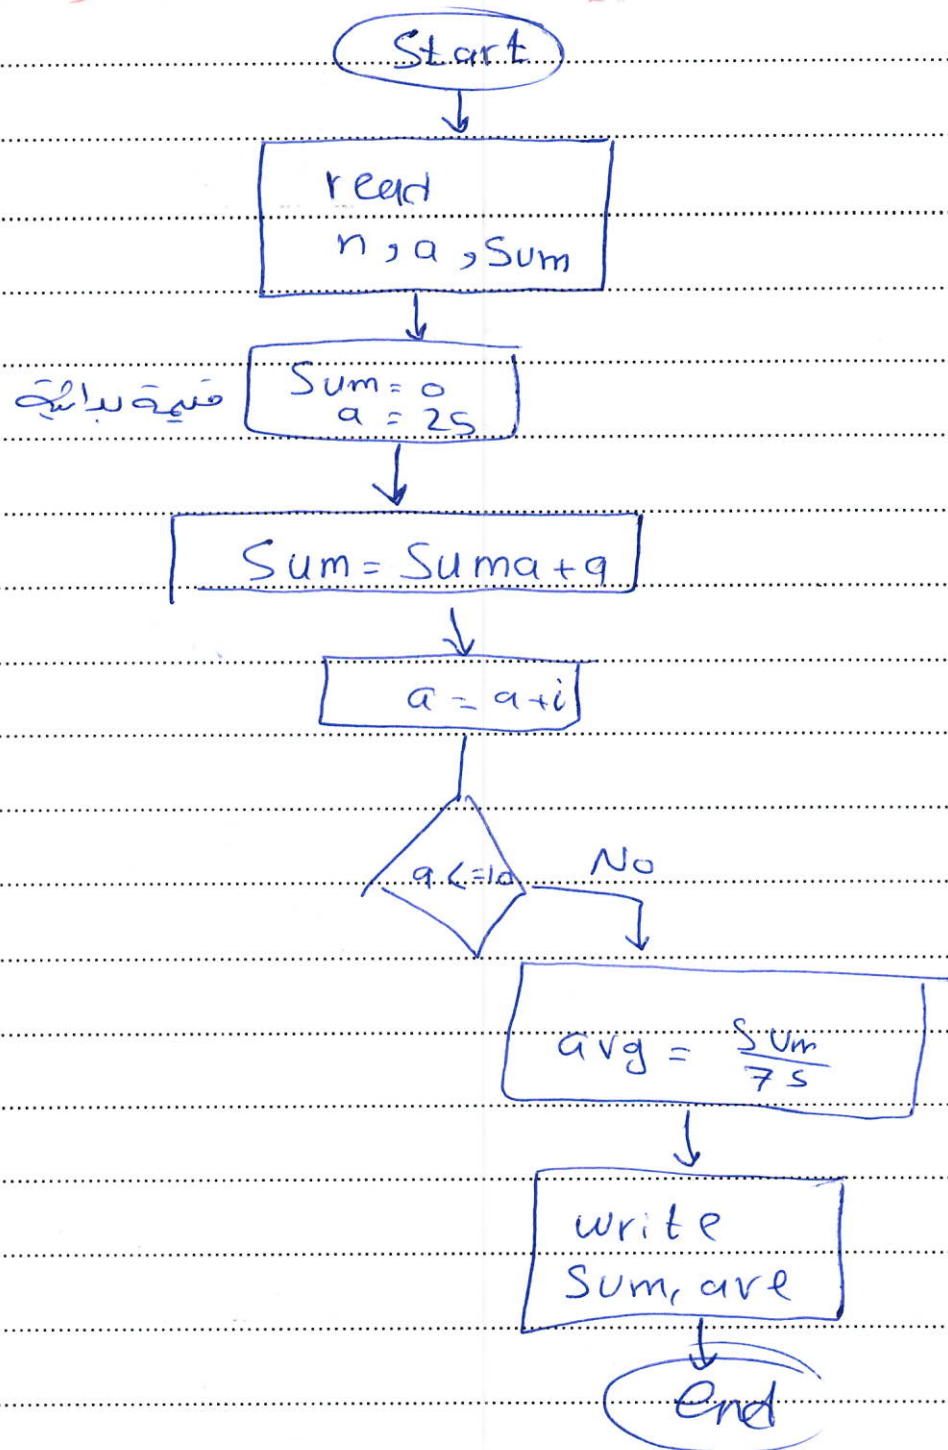 Start
read
n, a, Sum
Sum = 0
قيمة بدائية
a = 25
Sum = Suma + a
a = a + i
a <= 10
No
avg = Sum
75
write
Sum, ave
end